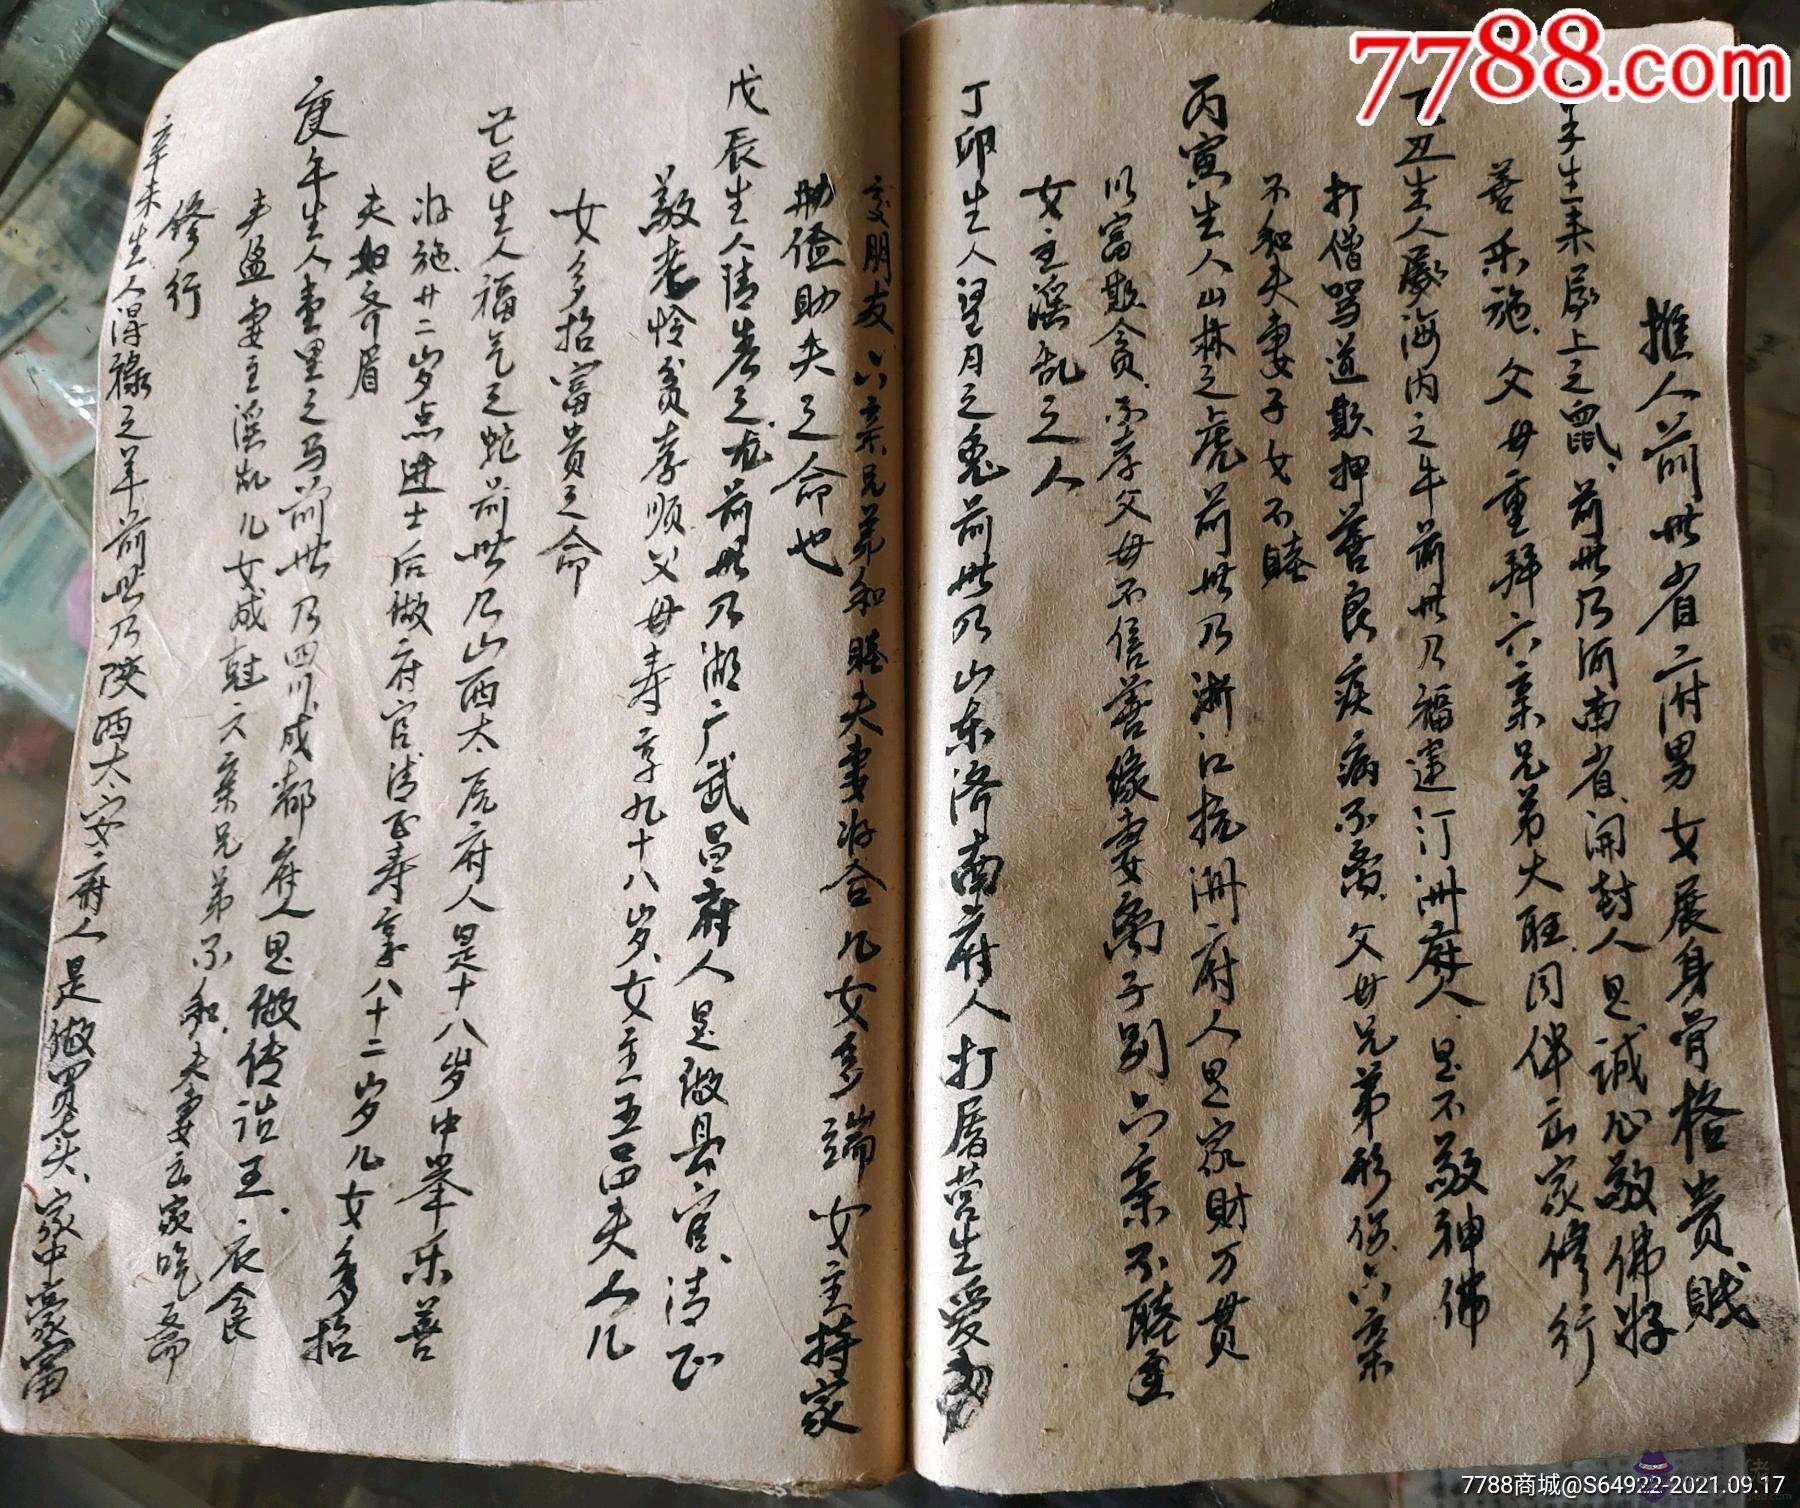 7788.com
推人前世省二府男女展身骨格贵贱
子生耒屋上之鼠、前世乃河南省、開封人是诚心敬佛好
善乐施、父母重拜六亲兄弟火旺、同伴出家修行
丑生人海内之牛前世乃福建汀洲府人、是不敬神佛
打僧骂道欺押善良疾病不离、父母兄弟形伤、六亲
不和夫妻子女不睦
丙寅生人山林之虎前世乃浙江杭洲府人是家财万贯
以富欺贪、不孝父母不信善缘妻离子别六亲不睦
女主淫乱之人
丁卯生人望月之兔前世乃山东济南府人打屠营生爱
交朋友、六亲兄弟和睦夫妻好合儿女多端女主持家
助益助夫之命也
戊辰生人清之龙前世乃湖广武昌府人是做县官、清正
敬老怜贫孝顺父母寿享九十八岁、女主五品夫人儿
女多招富贵之命
巳生人福气之蛇前世乃山西太原府人是十八岁中举乐善
好施、廿二岁点进士后做府官清正寿享八十二岁儿女多招
夫妇齐眉
庚午生人堂里之马前世乃四川成都府人是做传诰王、衣食
丰盈妻主淫乱儿女成对六亲兄弟不和、夫妻出家吃斋
修行
辛未生人得禄之羊前世乃陕西太安府人是做买头、家中豪富
7788商城@S64922-2021.09.17